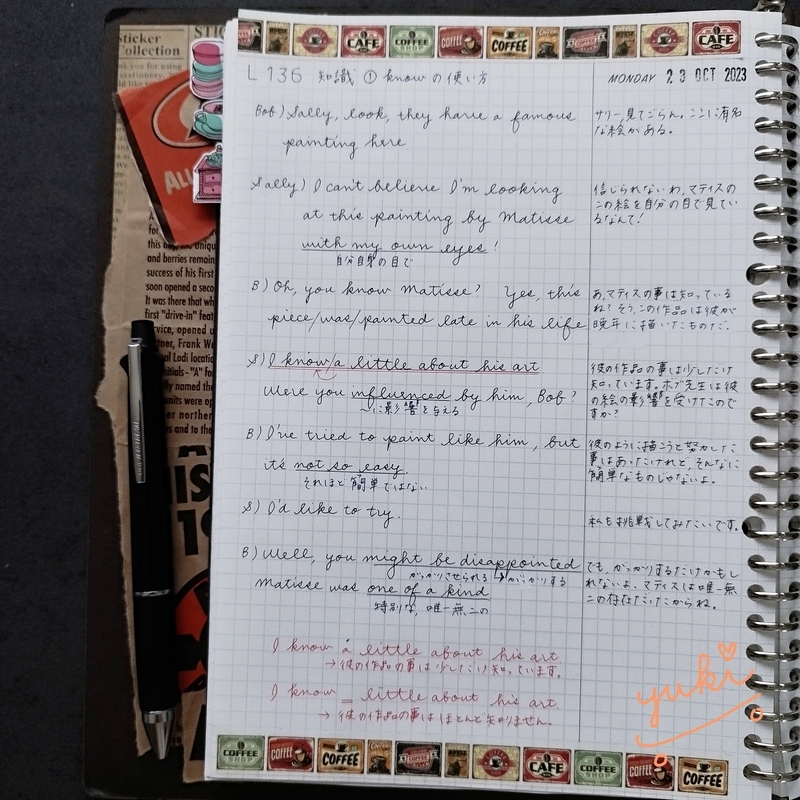 Sticker
Collection
STIC
ALL
CAFE
COFFEE
COFFEE
CAFE
L136 知識 ① know の使い方
MONDAY 23 OCT 2023
Bob) Sally, look, they have a famous
painting here
サリー、見てごらん。ここに有名
な絵がある。
Sally) I can't believe I'm looking
at this painting by Matisse
with my own eyes!
自分自身の目で
信じられないわ、マティスの
この絵を自分の目で見てい
るなんて!
B) Oh, you know Matisse? Yes, this
piece/was/painted late in his life
あ、マティスの事は知っている
ね? そう、この作品は彼が
晩年に描いたものだ。
S) I know/a little about his art
Were you influenced by him, Bob?
〜に影響を与える
彼の作品の事は少しだけ
知っています。ボブ先生は彼
の絵の影響を受けたので
すか?
B) I've tried to paint like him, but
it's not so easy.
それほど簡単ではない
彼のように描こうと努力した
事はあったけれど、そんなに
簡単なものじゃないよ。
S) I'd like to try.
私も挑戦してみたいです。
B) Well, you might be disappointed
がっかりさせられる → がっかりする
Matisse was one of a kind
特別な、唯一無二の
でも、がっかりするだけかもし
れないよ、マティスは唯一無
二の存在だったからね。
I know a little about his art.
→ 彼の作品の事は少しだけ知っています。
I know _ little about his art
→ 彼の作品の事はほとんど知りません。
yuki
COFFEE
COFFEE
COFFEE
CAFE
COFFEE
COFFEE
and berries remained
success of his First
soon opened a second
It was there that
first "drive-in" feat
service, opened
Frank We
Lodi locatio